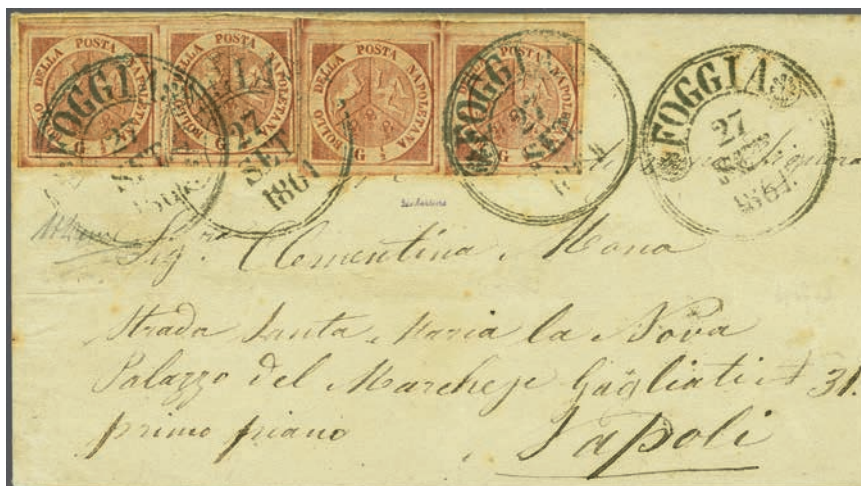 BOLLO DELLA POSTA NAPOLETANA
G 1/2
BOLLO DELLA POSTA NAPOLETANA
G 1/2
BOLLO DELLA POSTA NAPOLETANA
G 1/2
BOLLO DELLA POSTA NAPOLETANA
G 1/2
FOGGIA
27
SET
FOGGIA
27
SET
1861
FOGGIA
27
SET
FOGGIA
27
SET
1861
Signora
Sig.ra Clementina Mona
Strada Santa Maria la Nova
Palazzo del Marchese Gagliati # 31.
primo piano
Napoli